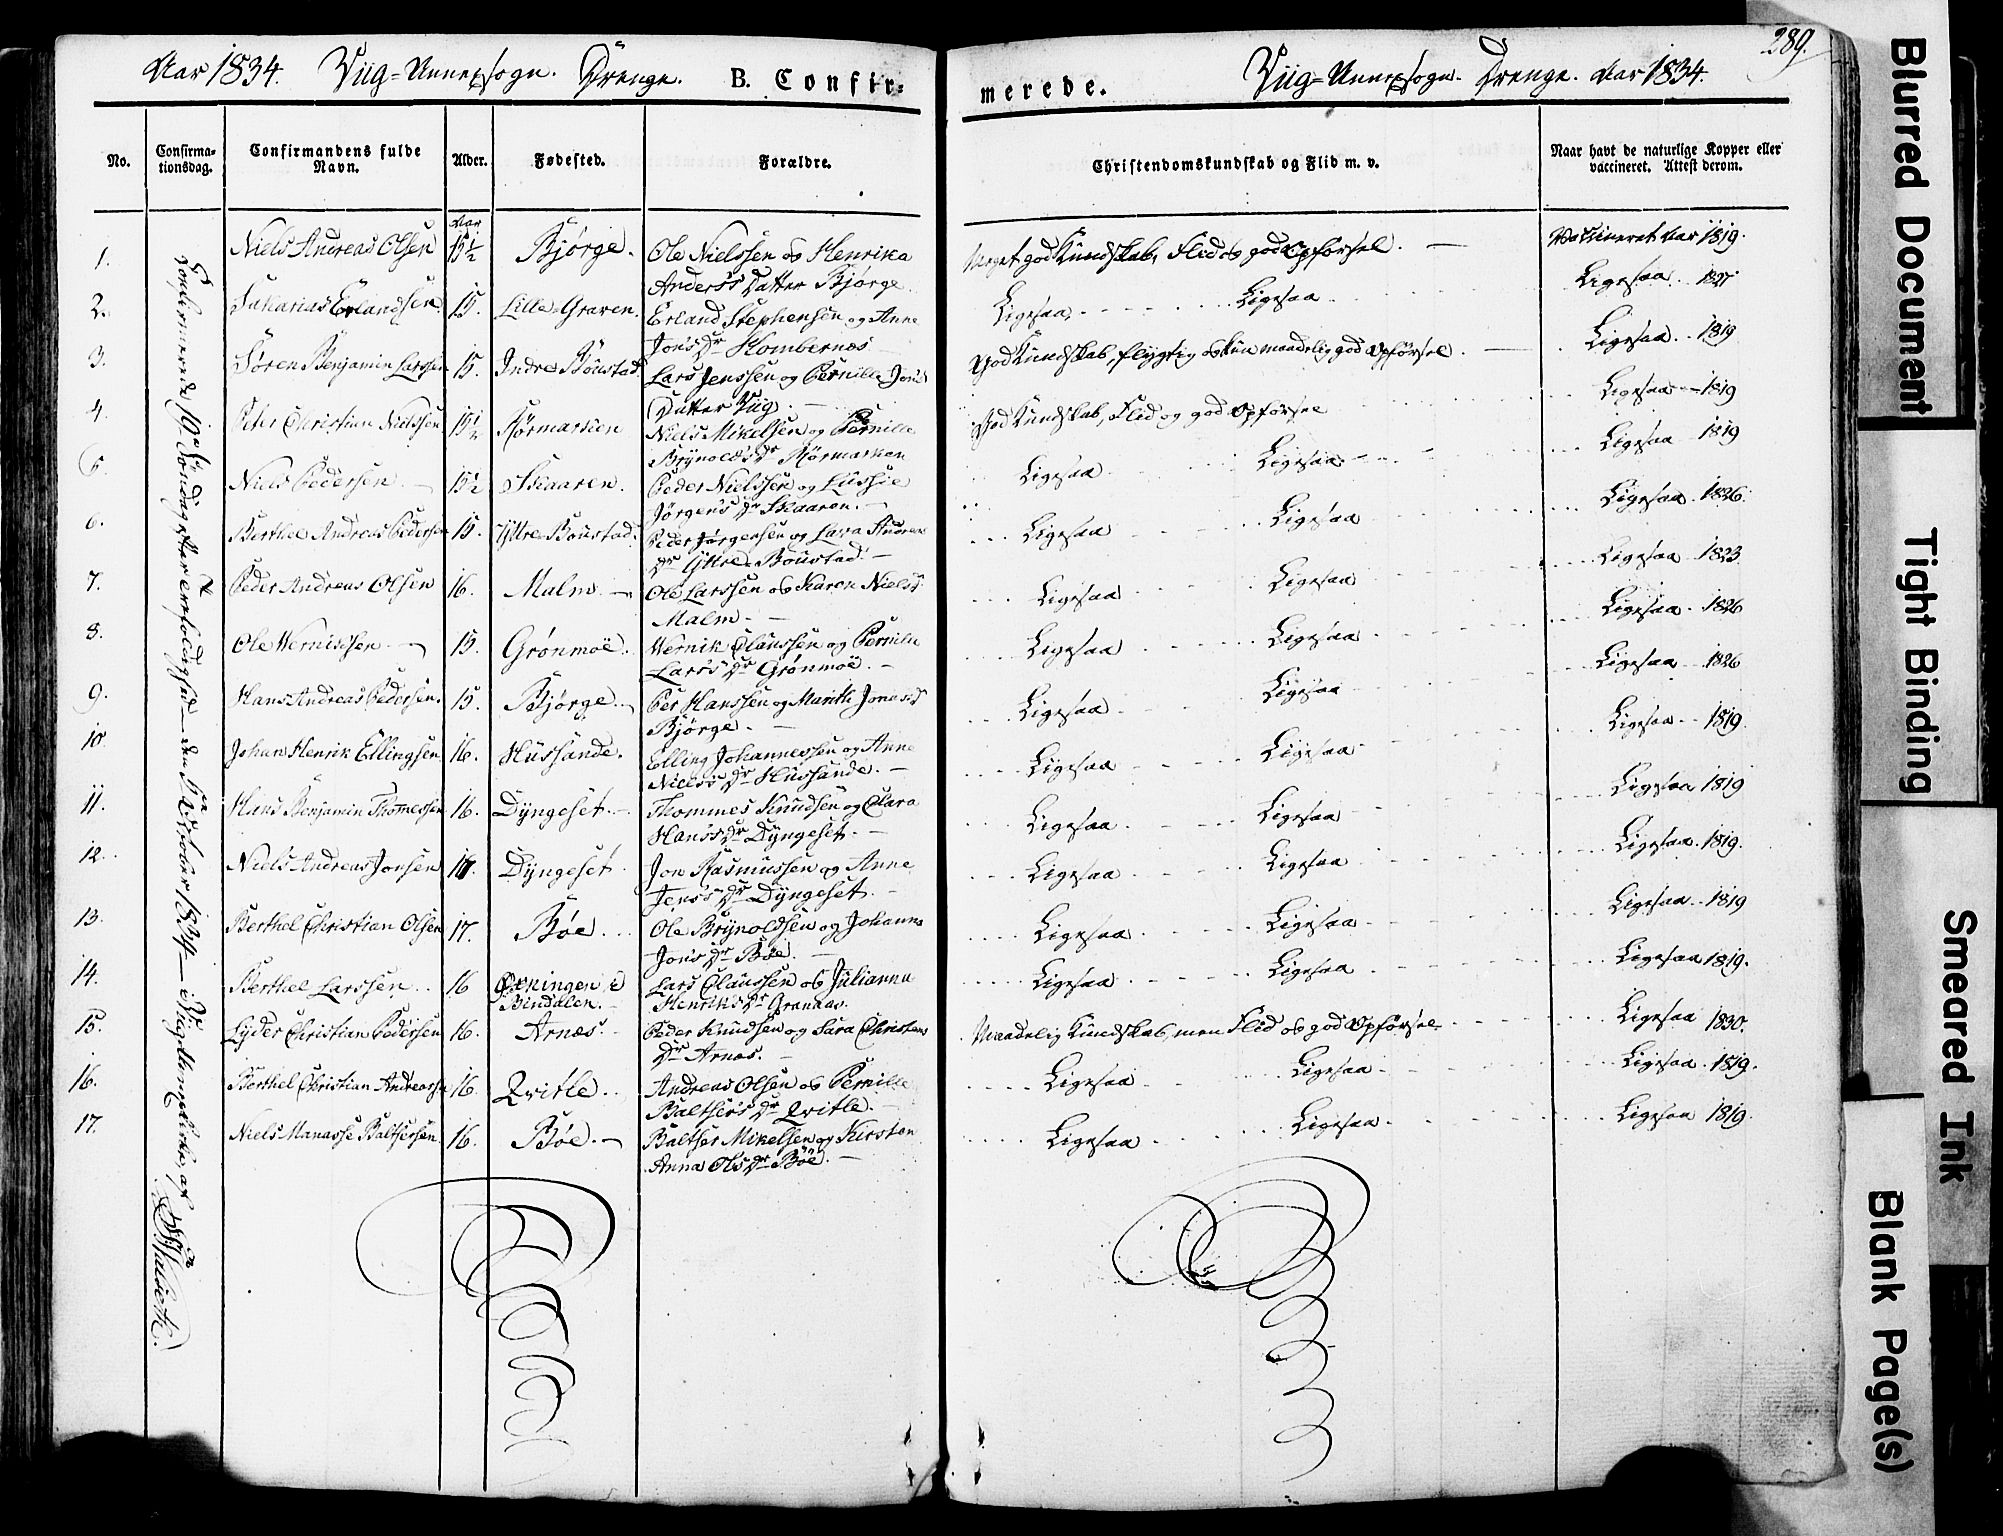 Aar 1834. Viig-Annexsogn. Drenge. B. Confir-
merede. Viig-Annexsogn. Drenge. Aar 1834. 289.
No. Confirma-
tionsdag. Confirmandens fulde
Navn. Alder. Fødested. Forældre. Christendomskundskab og Flid m. v. Naar havt de naturlige Kopper eller
vaccineret. Attest derom.
Aar
1. Niels Andreas Olsen 15½ Bjørge. Ole Nielssen og Henrika Meget god Kundskab, Flid og god Opførsel. Vaccineret Aar 1819.
Anders's Datter Bjørge.
2. Sakarias Erlandsen 15. Lille-Graven. Erland Stephensen og Anne Ligesaa Ligesaa Ligesaa
Jons Dr Hombernæs
3. Søren Benjamin Larssen 15. Indre Boustad. Lars Jenssen og Pernille Jons God Kundskab, flygtig og kun maadelig god Opførsel. Ligesaa 1819
Datter Viig.
4. Peter Christian Nielssen 15½ Rørmarken Niels Mikelsen og Pernille God Kundskab, Flid og god Opførsel Ligesaa 1819
Brynolds Dr Rørmarken
5. Niels Pedersen 15½ Skaaren. Peder Nielssen og Lussie Ligesaa Ligesaa Ligesaa 1819
Jørgens Dr Skaaren.
6. Berthel Andreas Pedersen 15. Yttre-Boustad. Peder Jørgensen og Lava Ligesaa Ligesaa Ligesaa 1826.
Dr Yttre-Boustad.
7. Peder Andreas Olsen 16. Malm Ole Larssen og Karen Niels Ligesaa Ligesaa Ligesaa 1823
Malm
8. Ole Wernissen 15. Grønmoe. Wernik Claussen og Pernille Ligesaa Ligesaa Ligesaa 1826
Lars's Dr Grønmoe.
9. Hans Andreas Pedersen. 15. Bjørge. Per Hanssen og Marith Jonas's Ligesaa Ligesaa Ligesaa 1826
Bjørge.
10. Johan Henrik Ellingsen 16. Hussande. Elling Johannessen og Anne Ligesaa Ligesaa Ligesaa 1819.
Niels's Dr Hussande.
11. Hans Benjamin Thomessen 16. Dyngeset. Thommes Knudsen og Clara Ligesaa Ligesaa Ligesaa 1819
Hans's Dr Dyngeset.
12. Niels Andreas Jonsen Dyngeset Jon Rasmussen og Anne Ligesaa Ligesaa Ligesaa 1819.
Jens's Dr Dyngeset.
13. Berthel Christian Olsen 17. Bøe. Ole Brynoldsen og Johanna Ligesaa Ligesaa Ligesaa 1819
Jons Dr Bøe.
14. Berthel Larssen 16 Øxningen i Lars Claussen og Julianna Ligesaa Ligesaa Ligesaa 1819.
Bindalen. Henriks Dr Granaas.
15. Lyder Christian Pedersen 16. Arnæs. Peder Knudsen og Sara Christens Maadelig Kundskab, men Flid og god Opførsel Ligesaa 1830.
Dr Arnæs.
16. Berthel Christian Andreassen 16. Qvitle. Andreas Olsen og Pernille Ligesaa Ligesaa Ligesaa 1819.
Balthers Dr Qvitle.
17. Niels Manasse Baltsersen 16. Bøe. Baltser Mikelsen og Kirsten Ligesaa Ligesaa Ligesaa 1819.
Anna Ols Dr Bøe.
Confirmerede 19de Søndag efter - den 5te October 1834 - i Viig Annexkirke, af
Blurred Document
Tight Binding
Smeared Ink
Blank Page(s)